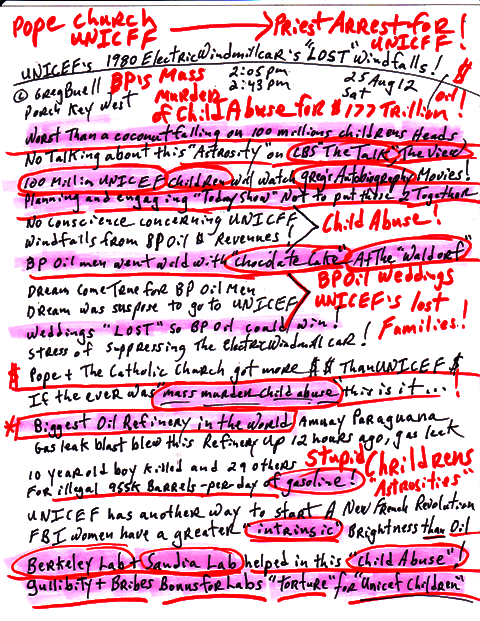 Pope Church ⟶ Priest Arrest for
UNICEF UNICEF!
UNICEF's 1980 ElectricWindmillcar's "LOST" Windfalls!
© Greg Buell BP's Mass 2:05 pm 25 Aug 12 $
Porch Key West Murder 2:43 pm Sat oil!
of Child Abuse for $177 Trillion!
Worst Than a coconut falling on 100 millions childrens Heads
No Talking about this "Astrosity" on CBS "The Talk" "The View"
100 Millin UNICEF children will watch Greg's Autobiography Movies!
Planning and engaging "Today Show" Not to put these 2 Togather
No conscience concerning UNICEF Child Abuse!
Windfalls from BP Oil $ Revenues!
BP Oil men went wild with "Chocolate Cake" At The "Waldorf"
Dream come True for BP Oil Men BP Oil Weddings
Dream was suspose to go to UNICEF UNICEF's lost
Weddings "LOST" so BP Oil could win! Families!
Stress of suppressing the ElectricWindmillcar!
$ Pope + The Catholic Church got more $ $ Than UNICEF $
If the ever was "mass murder child abuse" this is it...!
* Biggest Oil Refinery in the World Amuay Paraguana
Gas leak blast blew this Refinery up 12 hours ago, gas leak
10 year old boy killed and 29 others Stupid Chrildrens
For illegal 955K Barrels-per-day of gasoline! "Astrosities"
UNICEF has another way to start A New French Revolution
FBI Women have a greater "intrinsic" Brightness than Oil
Berkeley Lab + Sandia Lab helped in this "Child Abuse"!
gullibity + Bribes Bonus for Labs "torture" for "Unicef Children"